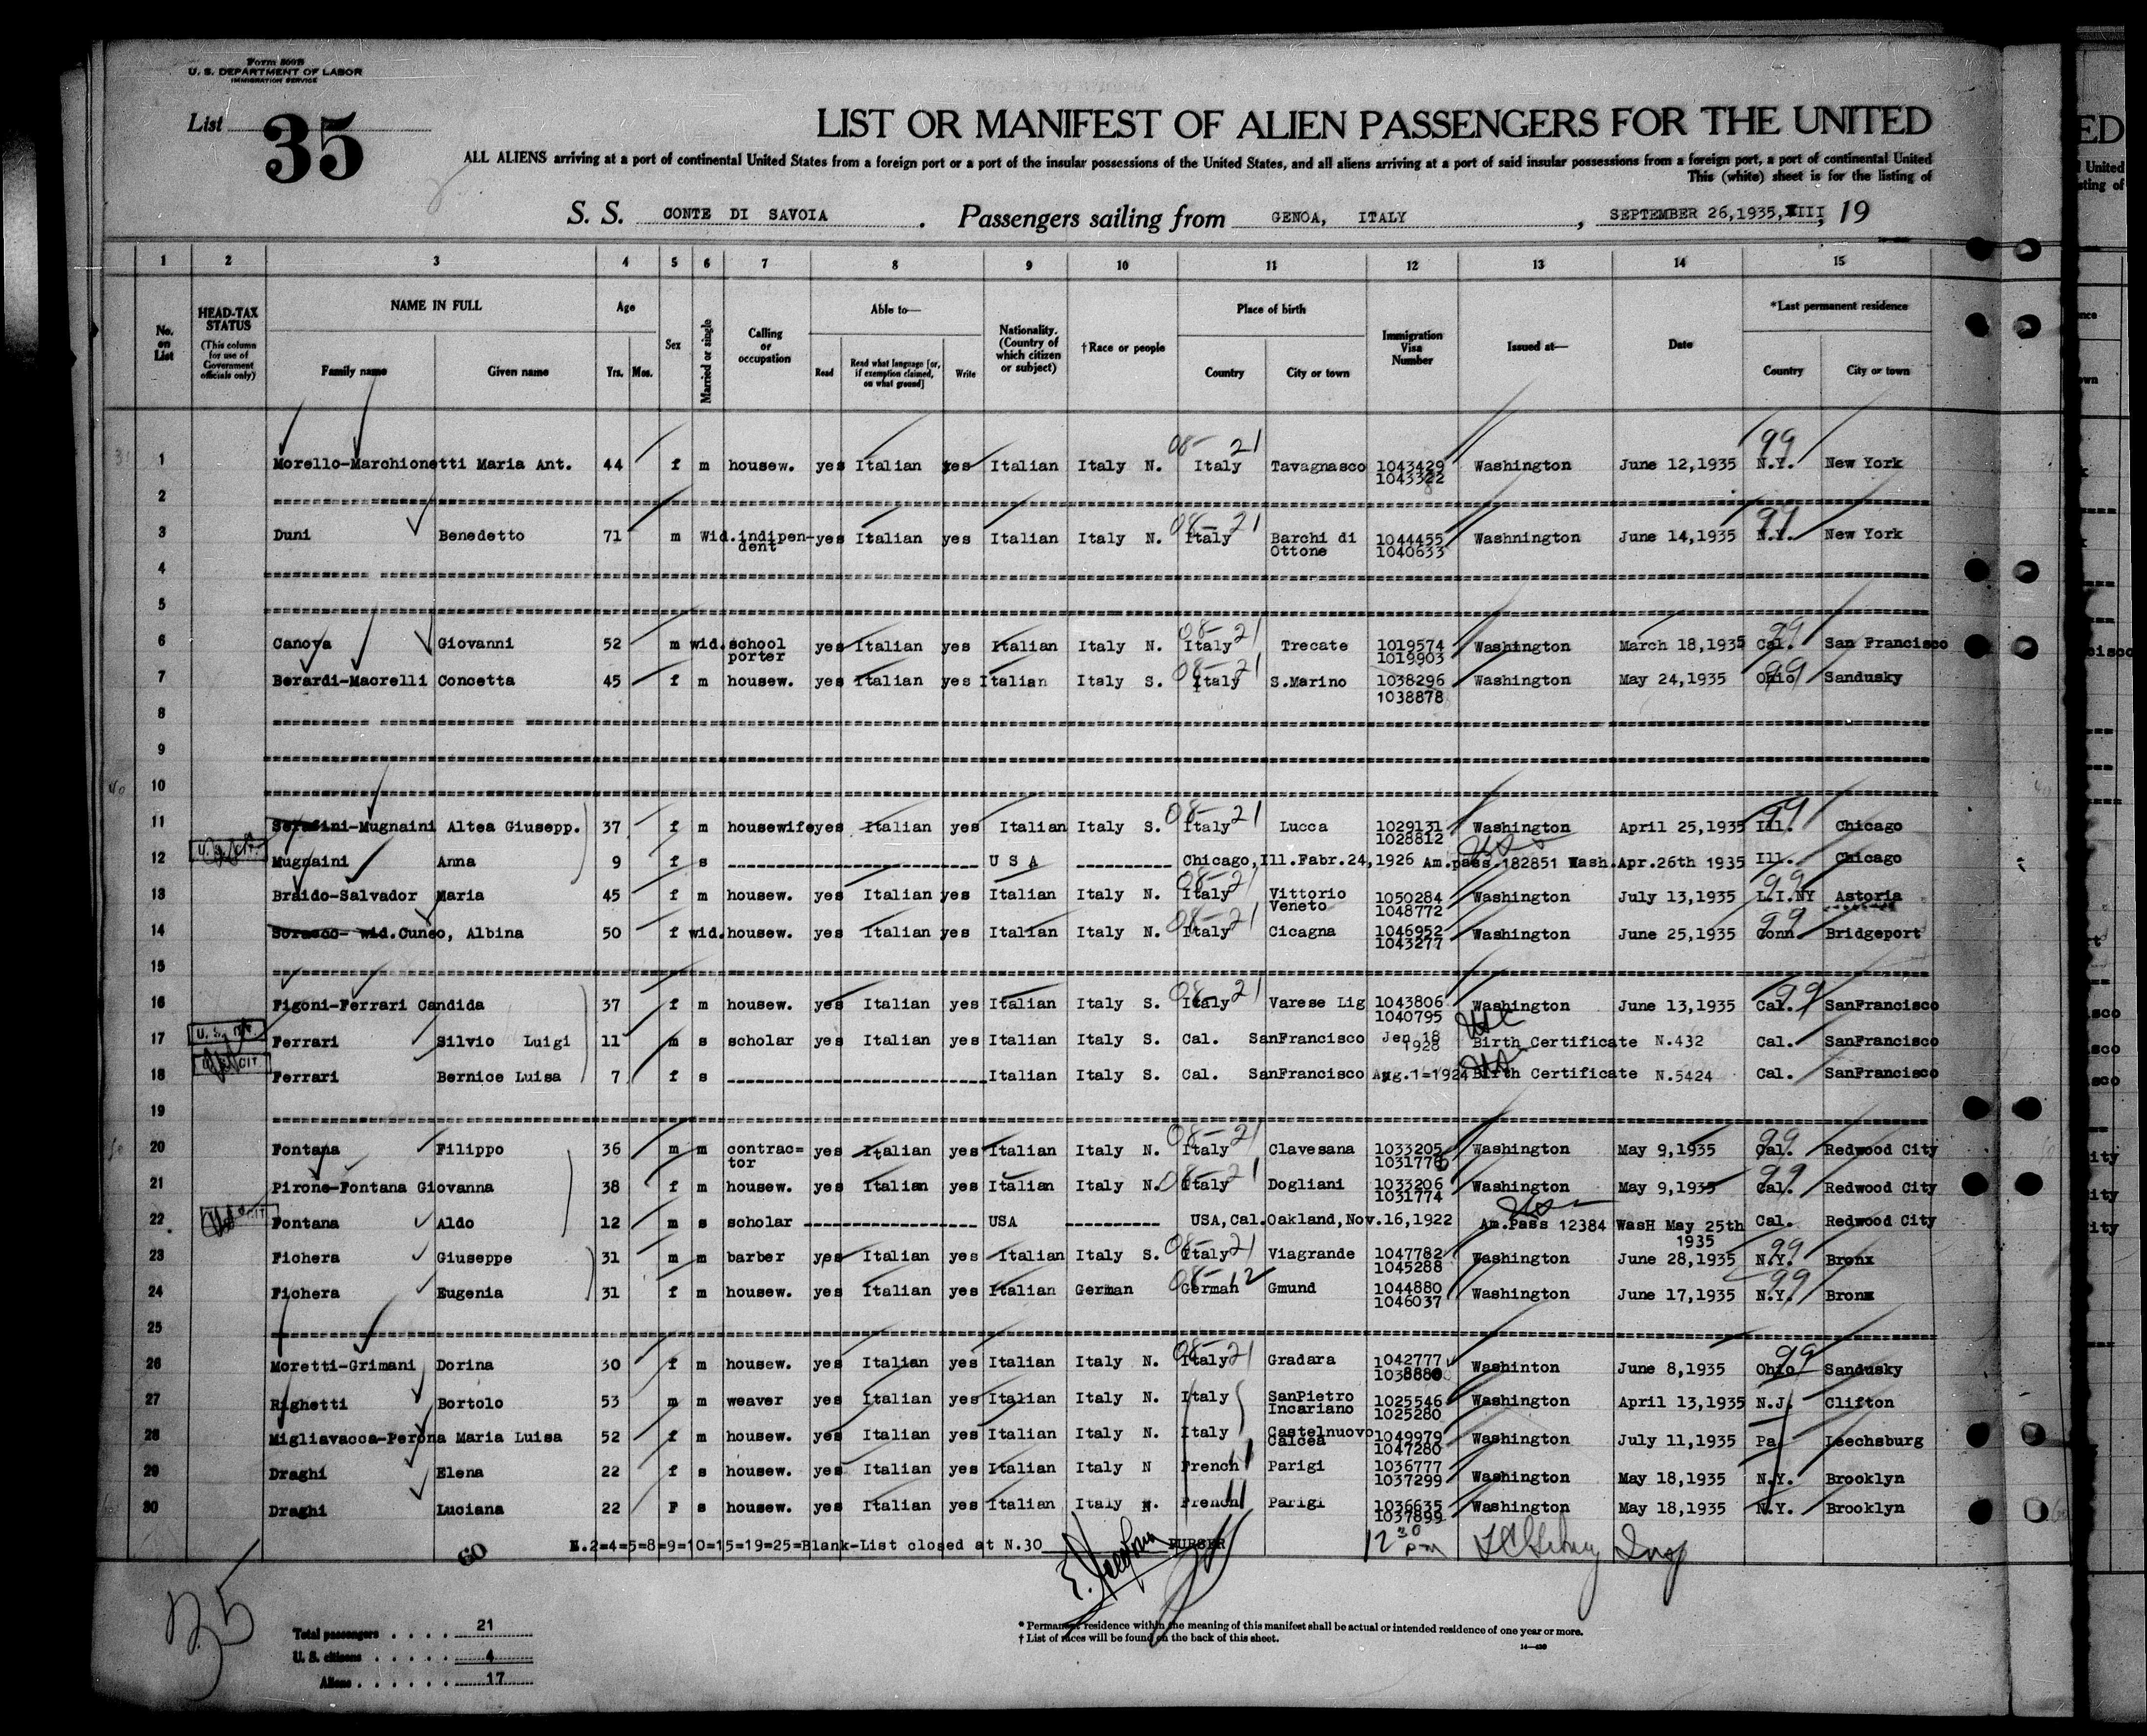 Form 500B
U. S. DEPARTMENT OF LABOR
IMMIGRATION SERVICE
List 35
LIST OR MANIFEST OF ALIEN PASSENGERS FOR THE UNITED
ALL ALIENS arriving at a port of continental United States from a foreign port or a port of the insular possessions of the United States, and all aliens arriving at a port of said insular possessions from a foreign port, a port of continental United
This (white) sheet is for the listing of
S. S. CONTE DI SAVOIA. Passengers sailing from GENOA, ITALY, SEPTEMBER 26,1935,XIII, 19
1 2 3 4 5 6 7 8 9 10 11 12 13 14 15
No. on List
HEAD-TAX STATUS (This column for use of Government officials only)
NAME IN FULL Family name Given name
Age Yrs. Mos.
Sex
Married or single
Calling or occupation
Able to— Read Read what language [or, if exemption claimed, on what ground] Write
Nationality. (Country of which citizen or subject)
†Race or people
Place of birth Country City or town
Immigration Visa Number
Issued at—
Date
*Last permanent residence Country City or town
08- 21 99
1 Morello-Marchionetti Maria Ant. 44 f m housew. yes Italian yes Italian Italy N. Italy Tavagnasco 1043429 Washington June 12,1935 N.Y. New York
1043322
2
08-21 99
3 Duni Benedetto 71 m Wid. indipen- yes Italian yes Italian Italy N. Italy Barchi di 1044455 Washnington June 14,1935 N.Y. New York
dent Ottone 1040633
4
5
08-21 99
6 Canova Giovanni 52 m wid. school yes Italian yes Italian Italy N. Italy Trecate 1019574 Washington March 18,1935 Cal. San Francisco
porter 1019903
08-21 99
7 Berardi-Macrelli Concetta 45 f m housew. yes Italian yes Italian Italy S. Italy S.Marino 1038296 Washington May 24,1935 Ohio Sandusky
1038878
8
9
10
08-21 99
11 Serafini-Mugnaini Altea Giusepp. 37 f m housewife yes Italian yes Italian Italy S. Italy Lucca 1029131 Washington April 25,1935 Ill. Chicago
1028812
12 Mugnaini Anna 9 f s USA Chicago,Ill.Fabr.24,1926 Am.pass.182851 Wash.Apr.26th 1935 Ill. Chicago
08-21 99
13 Braido-Salvador Maria 45 f m housew. yes Italian yes Italian Italy N. Italy Vittorio 1050284 Washington July 13,1935 L.I.NY Astoria
Veneto 1048772
08-21 99
14 wid.Cuneo, Albina 50 f wid. housew. yes Italian yes Italian Italy N. Italy Cicagna 1046952 Washington June 25,1935 Conn. Bridgeport
1043277
15
08-21 99
16 Figoni-Ferrari Candida 37 f m housew. yes Italian yes Italian Italy S. Italy Varese Lig 1043806 Washington June 13,1935 Cal. SanFrancisco
1040795
17 Ferrari Silvio Luigi 11 m s scholar yes Italian yes Italian Italy S. Cal. SanFrancisco Jen 18 Birth Certificate N.432 Cal. SanFrancisco
1928
18 CIT Ferrari Bernice Luisa 7 f s Italian Italy S. Cal. SanFrancisco Aug.1=1924 Birth Certificate N.5424 Cal. SanFrancisco
19
08-21 99
20 Fontana Filippo 36 m m contrac= yes Italian yes Italian Italy N. Italy Clavesana 1033205 Washington May 9,1935 Cal. Redwood City
tor
08-21 99
21 Pirone-Fontana Giovanna 38 f m housew. yes Italian yes Italian Italy N. Italy Dogliani 1033206 Washington May 9,1935 Cal. Redwood City
1031774
22 Fontana Aldo 12 m s scholar USA USA,Cal.Oakland,Nov.16,1922 Am.Pass 12384 WasH May 25th Cal. Redwood City
1935
08-21 99
23 Fichera Giuseppe 31 m m barber yes Italian yes Italian Italy S. Italy Viagrande 1047782 Washington June 28,1935 N.Y. Bronx
1045288
08-12 99
24 Fichera Eugenia 31 f m housew. yes Italian yes Italian German German Gmund 1044880 Washington June 17,1935 N.Y. Bronx
1046037
25
08-21 99
26 Moretti-Grimani Dorina 30 f m housew. yes Italian yes Italian Italy N. Italy Gradara 1042777 Washinton June 8,1935 Ohio Sandusky
27 Righetti Bortolo 53 m m weaver yes Italian yes Italian Italy N. Italy SanPietro 1025546 Washington April 13,1935 N.J. Clifton
Incariano 1025280
28 Migliavacca-Perona Maria Luisa 52 f m housew. yes Italian yes Italian Italy N. Italy Castelnuovo 1049979 Washington July 11,1935 Pa Leechsburg
Calcea 1047280
29 Draghi Elena 22 f s housew. yes Italian yes Italian Italy N French Parigi 1036777 Washington May 18,1935 N.Y. Brooklyn
1037299
30 Draghi Luciana 22 F s housew. yes Italian yes Italian Italy N. French Parigi 1036635 Washington May 18,1935 N.Y. Brooklyn
1037899
N.2=4=5=8=9=10=15=19=25=Blank-List closed at N.30 PURSER
60
12 30 pm
Insp
35
Total passengers . . . . 21
U. S. citizens . . . . . 4
Aliens . . . . . . 17
* Permanent residence within the meaning of this manifest shall be actual or intended residence of one year or more.
† List of races will be found on the back of this sheet.